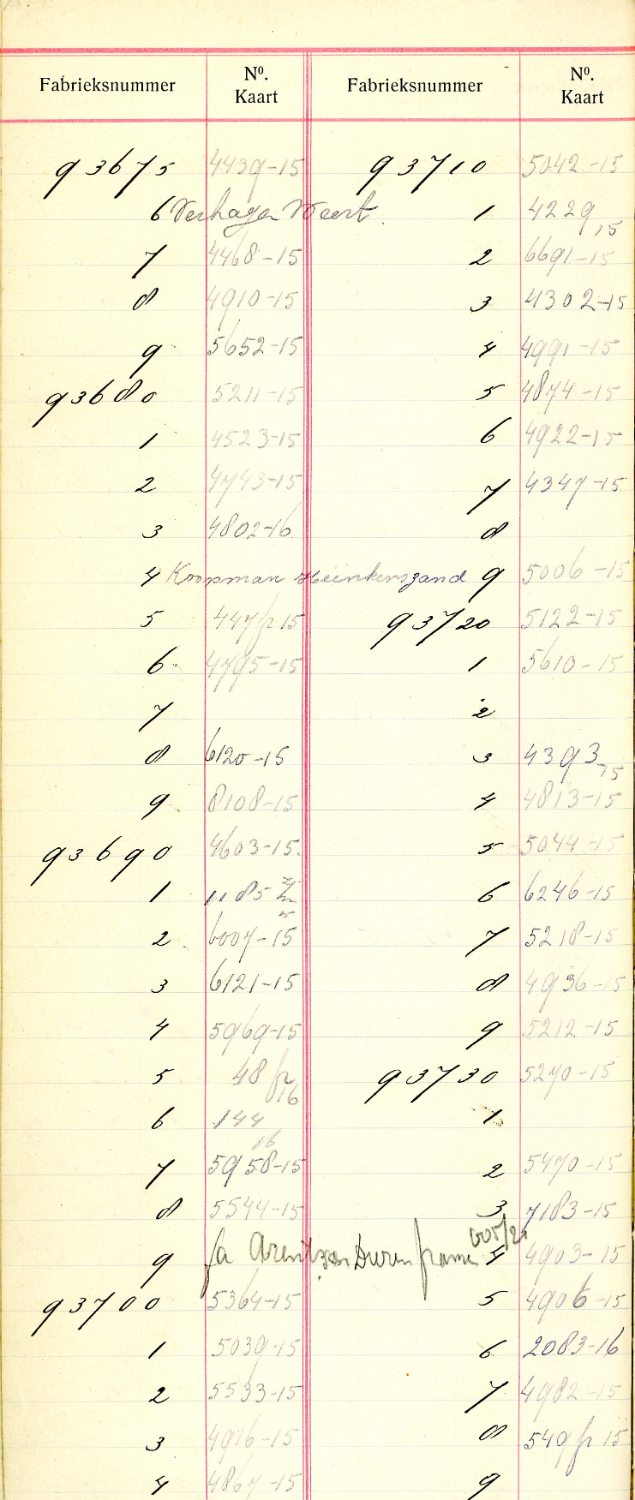 Fabrieksnummer Nº. Kaart Fabrieksnummer Nº. Kaart
93675 4439-15 93710 5042-15
6 Verhagen Weert. 1 4229 15
7 4468-15 2 6691-15
8 4910-15 3 4302-15
9 5652-15 4 4991-15
93680 5211-15 5 4874-15
1 4523-15 6 4922-15
2 4743-15 7 4347-15
3 4802-16 8
4 Koopman 9 5006-15
5 447 fr 15 93720 5122-15
6 4795-15 1 5610-15
7 2
8 6120-15 3 4393-15
9 8108-15 4 4813-15
93690 4603-15 5 5044-15
1 1185 6 6246-15
2 6007-15 7 5218-15
3 6121-15 8 4936-15
4 5969-15 9 5212-15
5 48 fr 16 93730 5270-15
6 144 16 1
7 5958-15 2 5470-15
8 5544-15 3 7183-15
9 fa Arentz van Duren frame 4 4903-15
93700 5364-15 5 4906-15
1 5039-15 6 2083-16
2 5533-15 7 4982-15
3 4916-15 8 549 fr 15
4 4867-15 9